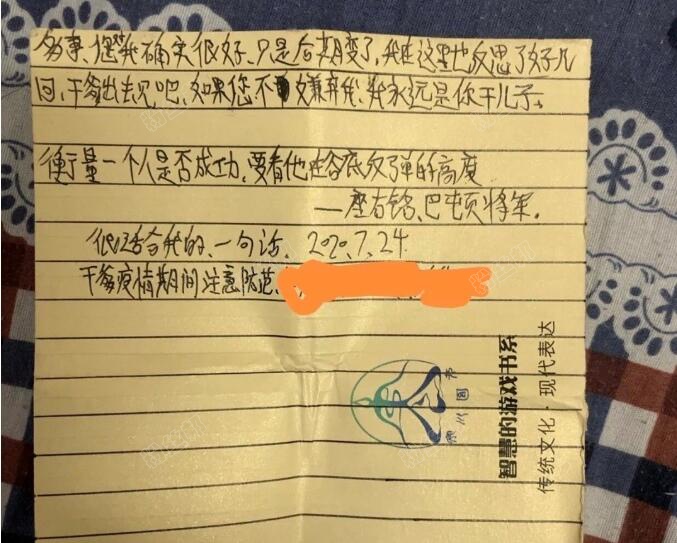 多事、您对我确实很好、只是后期变了,我在这里也反思了好几
回,干爹出去见吧,如果您不嫌弃我、我永远是你干儿子。
衡量一个人是否成功、要看他跌谷底反弹的高度
——座右铭、巴顿将军.
很适合我的、一句话、2020.7.24
干爹疫情期间注意防范、
智慧的游戏书系
传统文化·现代表达